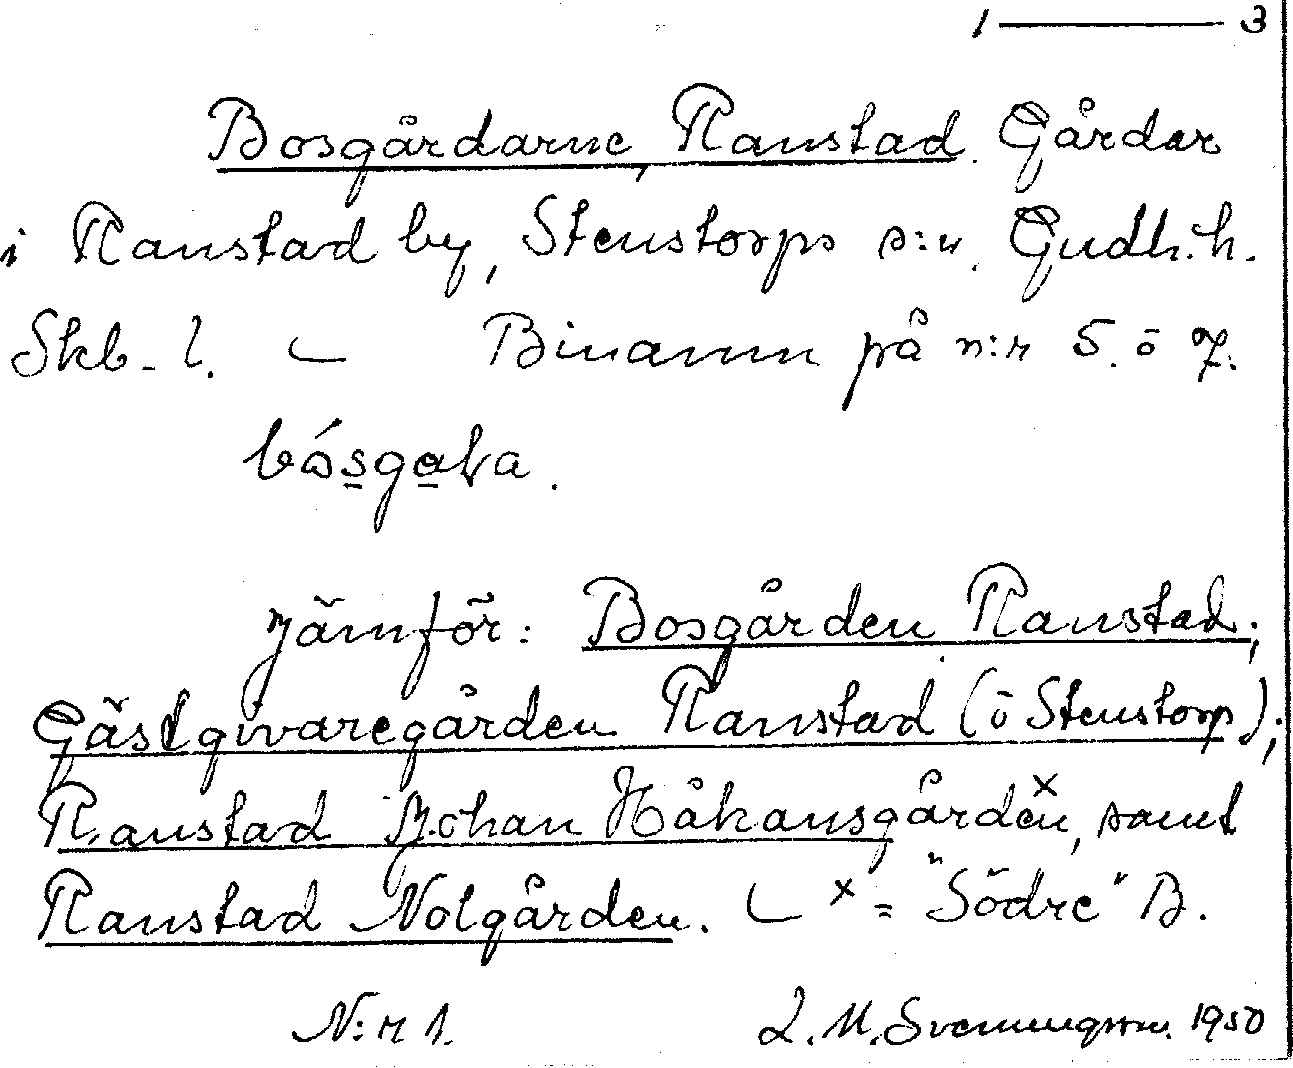 1 — 3
Bosgårdarne, Ranstad. Gårdar
i Ranstad by, Stenstorps s:n. Gudh. h.
Skb. l. — Binamn på n:r 5. ö 7.
Jämför: Bosgården Ranstad;
Gästgivaregården Ranstad (ö Stenstorp);
Ranstad Johan Håkansgården x, samt
Ranstad Nolgården. — x = "Södre" B.
N:r 1. L. M. Svenningsson. 1950